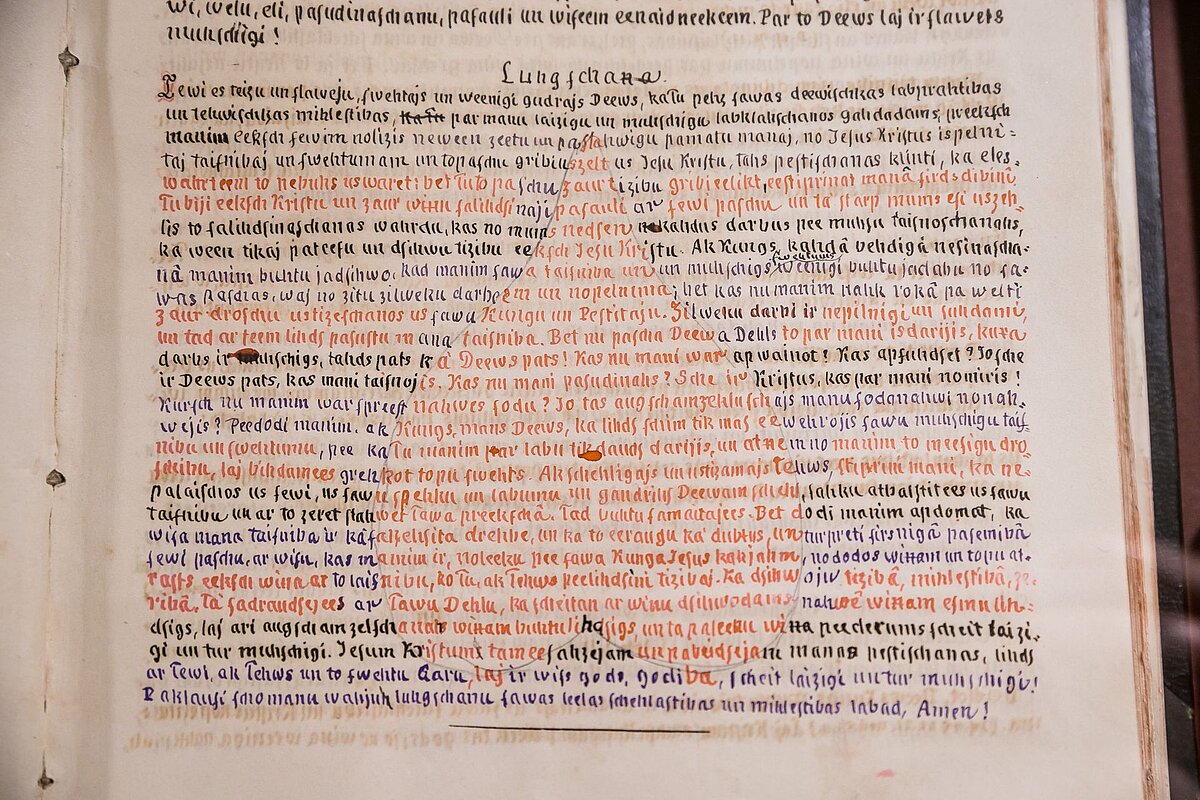 wi, welu, eli, pasudinaschanu, pasauli un wiseem eenaidneekeem. Par to Deews laj ir slawets
muhschigi!
Lungschana.
Tewi es teizu un slaweju, swehtajs un weenigi gudrajs Deews, ka Tu pehz sawas deewischkas labprahtibas
un tehwischkas mihlestibas, par manu laizigu un muhschigu labklahschanos gahdadams, preeksch
manim eeksch sewim nolizis neween zeetu un pastahwigu pamatu manaj, no Jesus Kristus ispelni-
taj taisnibaj un swehtumam un to paschu gribi us Jesu Kristu, tahs pestischanas klinti, ka eles-
wahrteem to nebuhs uswaret: bet Tu to paschu zaur tizibu gribi eelikt, eestiprinat manâ sirds dibini.
Tu biji eeksch Kristu un zaur winu salihdsinaji pasauli ar sewi paschu un ta starp mums esi uszeh-
lis to salihdsinaschanas wahrdu, kas no mums nedsen nekahdus darbus pee muhsu taisnoschanahs,
ka ween tikaj pateesu un dsihwu tizibu eeksch Jesu Kristu. Ak Kungs, kahdâ behdigâ nesinascha-
nâ manim buhtu jadsihwo, kad manim sawa taisniba un un muhschigs swehtums weenigi buhtu jadabu no sa-
was paschas, waj no zitu zilweku darbeem un nopelnima; bet kas nu manim nahk rokâ pa welti
zaur droschu ustizeschanos us sawu Kungu un Pestitaju. Zilweku darbi ir nepilnigi un sundami,
un tad ar teem lihds pasustu mana taisniba. Bet nu pascha Deewa Dehls to par mani isdarijis, kura
darbs ir muhschigs, tahds pats kâ Deews pats! Kas nu mani war apwainot? Kas apsuhdset? Jo sche
ir Deews pats, kas mani taisnojis. Kas nu mani pasudinahs? Sche ir Kristus, kas par mani nomiris!
Kursch nu manim war spreest nahwes sodu? Jo tas augschamzehluschajs manu sodu nahwi nonah-
wejis? Peedodi manim, ak Kungs, mans Deews, ka lihds schim tik mas eewehrojis sawu muhschigu tais-
nibu un swehtumu, pee ka Tu manim par labu tik daudz darijis, un atnem no manim to meesigu dro-
schibu, laj buhdamees grehkot topu swehts. Ak schehligajs un ustizamajs Tehws, stiprini mani, ka ne-
palaischos us sewi, us sawu spehku un labumu un gandrihs Deewam schehl, sahku atbalstitees us sawu
taisnibu un ar to zeret stahwet Tawa preekschâ. Tad buhtu samaitajees. Bet dodi manim apdomat, ka
wisa mana taisniba ir kâ sapehlsita drehbe, un ka to eeraugu kâ dubtus, un turpreti sirsnigâ pasemibâ
sewi paschu, ar wisu, kas manim ir, noleeku pee sawa Kunga Jesus kahjahm, nododos winam un topu at-
rasts eeksch wina ar to taisnibu, ko Tu, ak Tehws peelihdsini tizibaj. Ka dsihwoju tizibâ, mihlestibâ, ze-
ribâ, Tâ sadraudsejees ar Tawu Dehlu, ka scheitan ar winu dsihwodams nahwê winam esmu lih-
dsigs, laj ari augschamzelschanas winam buhtu lihdsigs, un ta paleeku wina peederums scheit laizi-
gi un tur muhschigi. Jesum Kristum, tam eesahzejam un pabeidsejam manas pestischanas, lihds
ar Tewi, ak Tehws un to swehtu Garu, laj ir wiss gods, godiba, scheit laizigi un tur muhschigi!
Paklausi scho manu wahju lungschanu sawas leelas schehlastibas un mihlestibas labad, Amen!